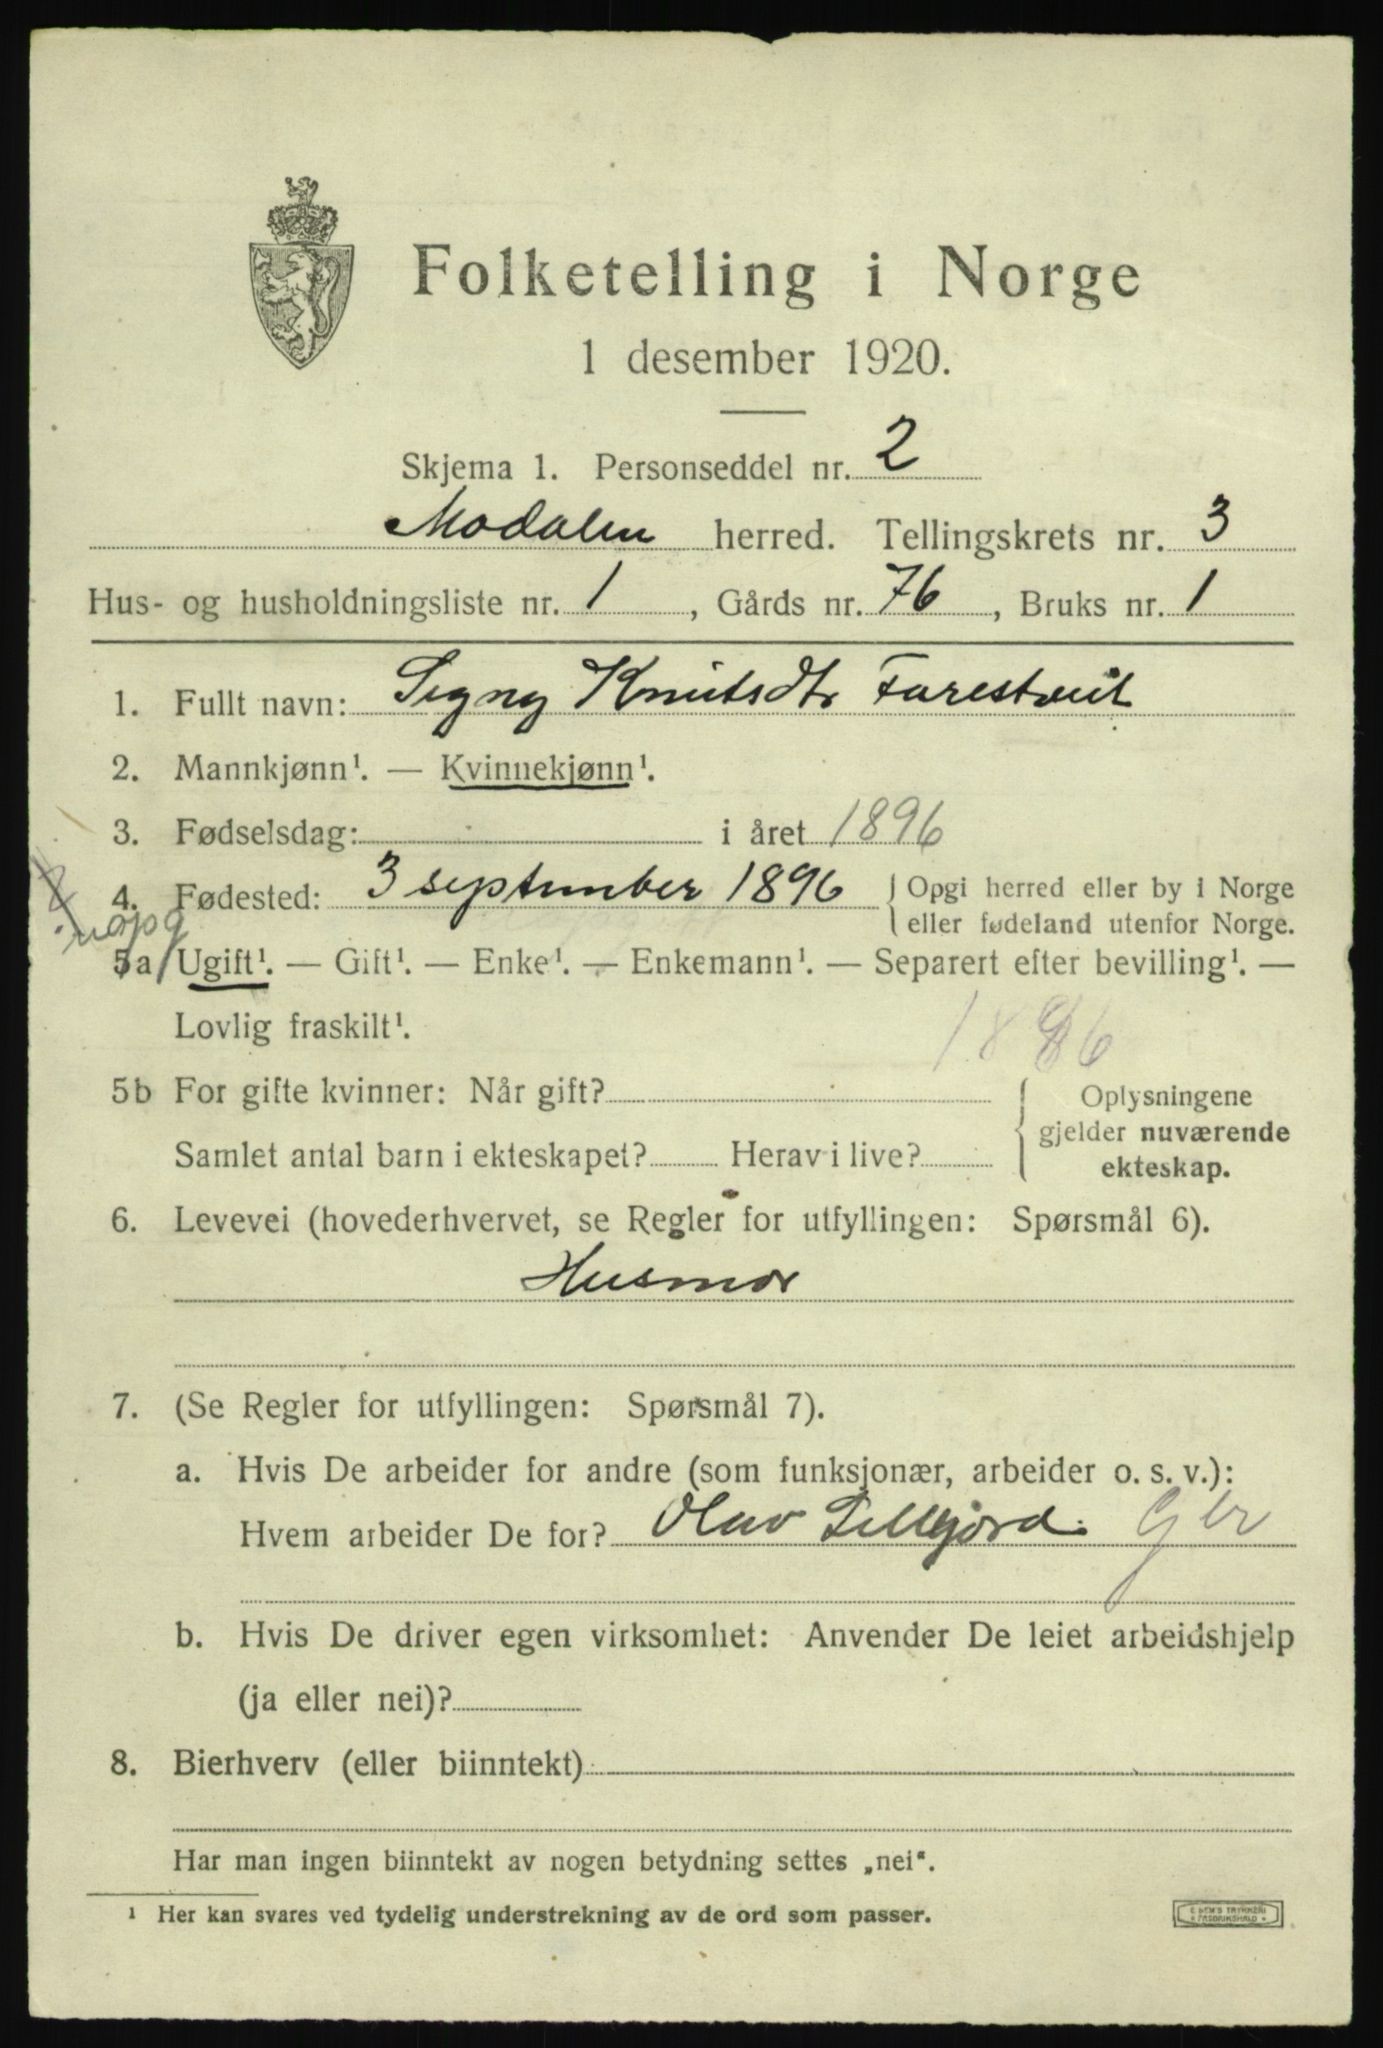 Folketelling i Norge
1 desember 1920.
Skjema 1. Personseddel nr. 2
Modalen herred. Tellingskrets nr. 3
Hus- og husholdningsliste nr. 1, Gårds nr. 76, Bruks nr. 1
1. Fullt navn: Signy Knutsdtr Farestveit
2. Mannkjønn¹. — Kvinnekjønn¹.
3. Fødselsdag: i året 1896
4. Fødested: 3 september 1896 { Opgi herred eller by i Norge
eller fødeland utenfor Norge.
uopg
5a Ugift¹. — Gift¹. — Enke¹. — Enkemann¹. — Separert efter bevilling¹. —
Lovlig fraskilt¹.
5b For gifte kvinner: Når gift? { Oplysningene
gjelder nuværende
Samlet antal barn i ekteskapet? Herav i live? ekteskap.
6. Levevei (hovederhvervet, se Regler for utfyllingen: Spørsmål 6).
Husmor
7. (Se Regler for utfyllingen: Spørsmål 7).
a. Hvis De arbeider for andre (som funksjonær, arbeider o. s. v.):
Hvem arbeider De for? Olav
b. Hvis De driver egen virksomhet: Anvender De leiet arbeidshjelp
(ja eller nei)?
8. Bierhverv (eller biinntekt)
Har man ingen biinntekt av nogen betydning settes „nei“.
¹ Her kan svares ved tydelig understrekning av de ord som passer.